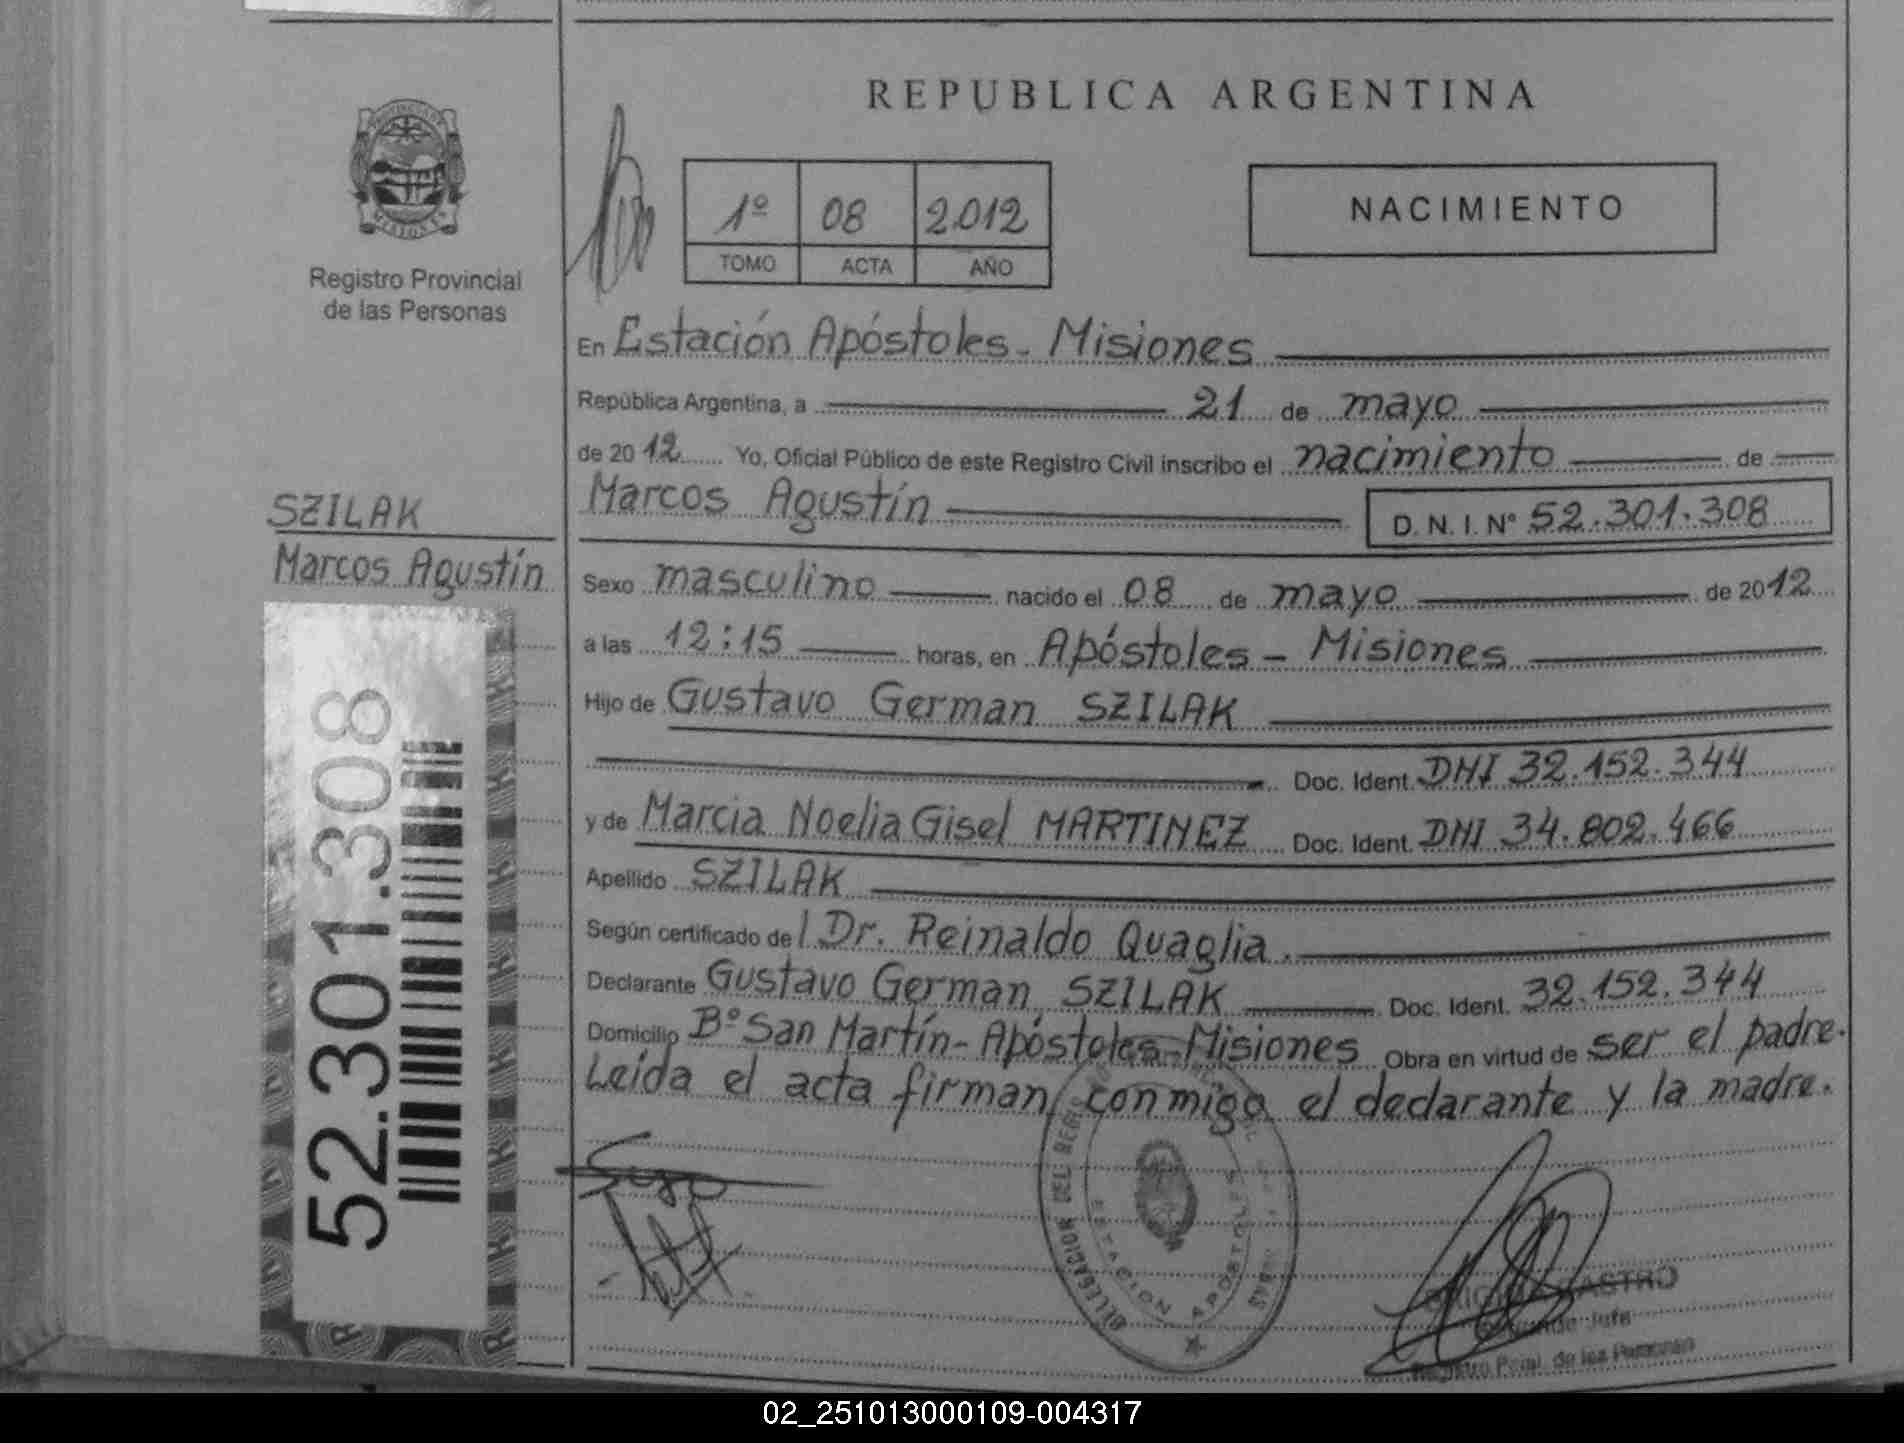 REPUBLICA ARGENTINA
PROVINCIA DE
MISIONES
Registro Provincial
de las Personas
1º 08 2.012
TOMO ACTA AÑO
NACIMIENTO
En Estación Apóstoles - Misiones
República Argentina, a 21 de mayo
de 2012 Yo, Oficial Público de este Registro Civil inscribo el nacimiento de
Marcos Agustín D. N. I. Nº 52.301.308
SZILAK
Marcos Agustín
52.301.308
Sexo masculino nacido el 08 de mayo de 2012
a las 12:15 horas, en Apóstoles - Misiones
Hijo de Gustavo German SZILAK
Doc. Ident. DNI 32.152.344
y de Marcia Noelia Gisel MARTINEZ Doc. Ident. DNI 34.802.466
Apellido SZILAK
Según certificado del Dr. Reinaldo Quaglia.
Declarante Gustavo German SZILAK Doc. Ident. 32.152.344
Domicilio Bº San Martín - Apóstoles - Misiones Obra en virtud de ser el padre.
Leída el acta firman conmigo el declarante y la madre.
DELEGACION DEL REGISTRO
ESTACION APOSTOLES
CASTRO
Jefe
Registro Pcial. de las Personas
02_251013000109-004317